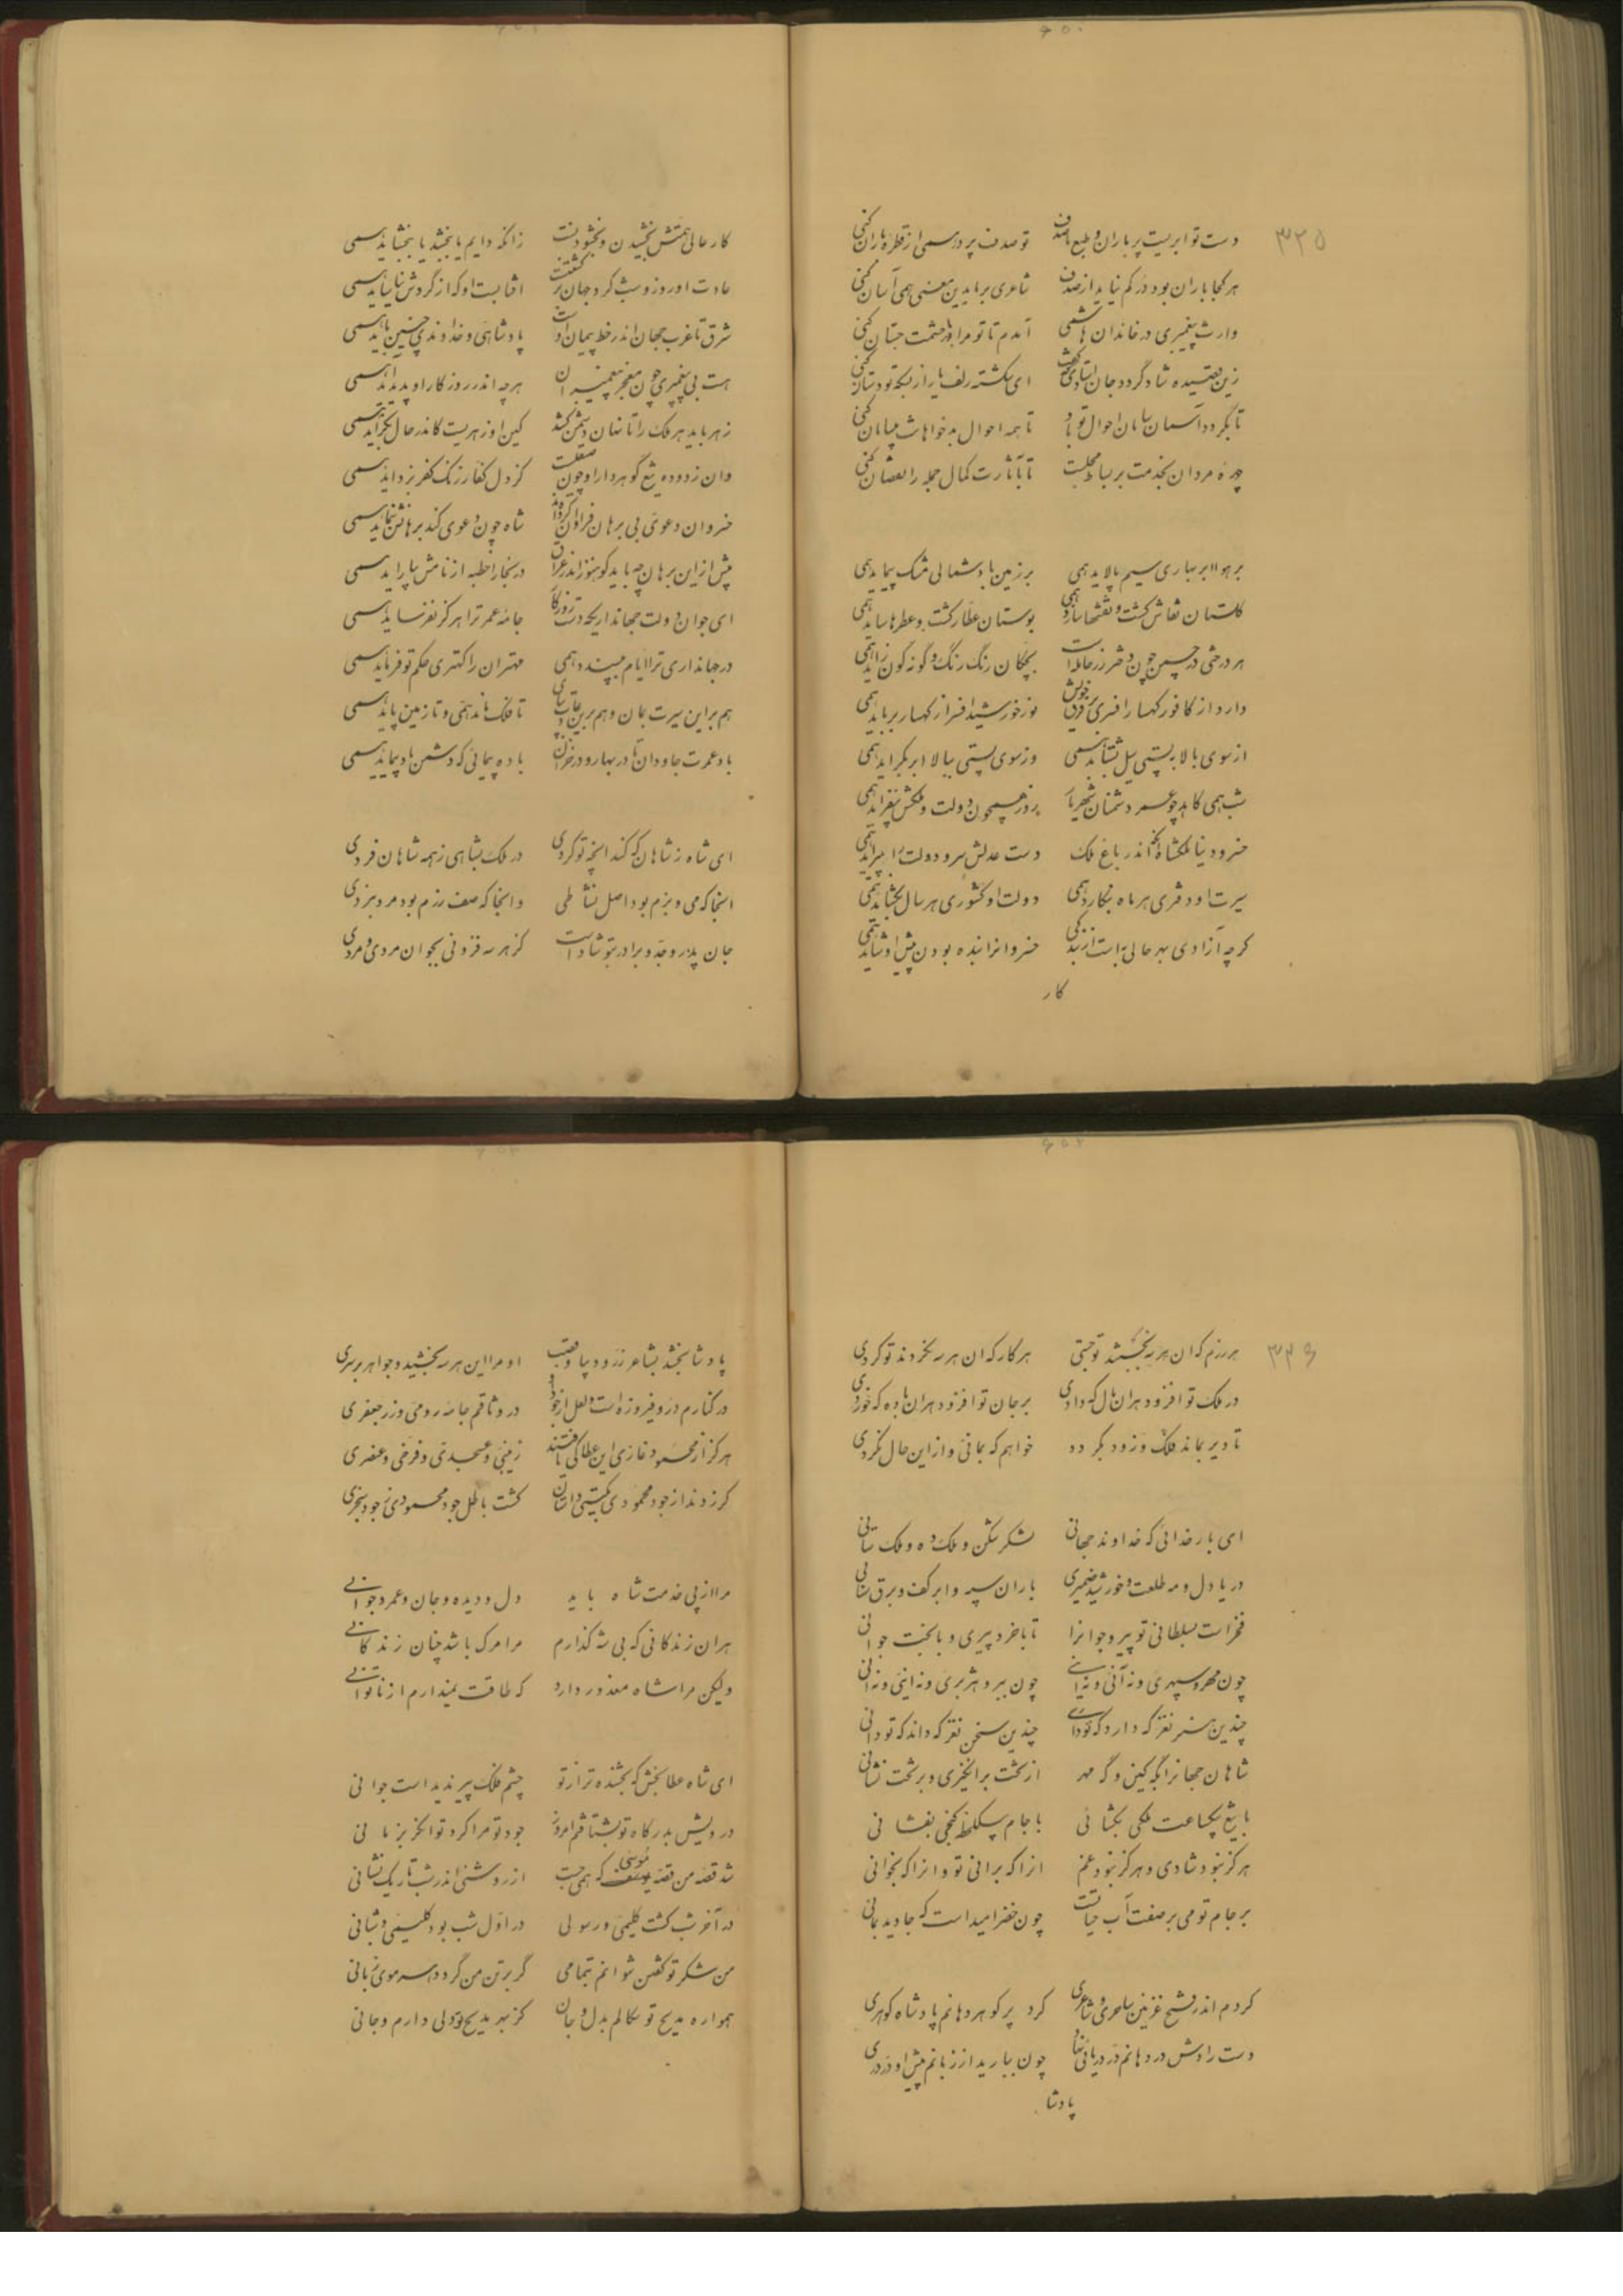 ۳۳۵
دست تو ابریست پر باران و طبع ما صدف    تو صدف پر در همی از قطره باران کنی
هر کجا باران بود در کم نیاید از صدف    شاعری بر ما بدین معنی همی آسان کنی
وارث پیغمبری در خاندان هاشمی    آمدم تا تو مرا در حشمت حسّان کنی
زین قصیده شاد گردد جان    ای شکسته زلف یار از بسکه تو دستان کنی
تا بگردد آسمان سامان احوال تو باد    تا همه احوال بدخواهانت بی سامان کنی
چهره مردان بخدمت بر بساط مجلست    تا بآثارت کمال جمله را نقصان کنی
بر هوا ابر بهاری سیم پالاید همی    بر زمین باد شمالی مشک پیماید همی
گلستان نقاش گشت و نقشها سازد همی    بوستان عطار گشت و عطرها ساید همی
هر درختی در چمن چون دختر رز حامله است    بچگان رنگ رنگ و گونه گون زاید همی
دارد از کافور کهسار افسری بر فرق خویش    نور خورشید افسر از کهسار برباید همی
از سوی بالا به پستی سیل بشتابد همی    وز سوی پستی ببالا ابر بگراید همی
شب همی کاهد چو عمر دشمنان شهریار    روز همچون دولت و ملکش بیفزاید همی
خسرو دنیا ملکشاه آنکه اندر باغ ملک    دست عدلش سرو دولت را بپیراید همی
سیرت او دفتری هر ماه بنگارد همی    دولت او کشوری هر سال بگشاید همی
گرچه آزادی بهر حالی به است از بندگی    خسروانرا بنده بودن پیش او شاید همی
کار
کار عالی همتش بخشیدن و بخشودنست    زانکه دایم یا ببخشد یا ببخشاید همی
عادت او روز و شب گرد جهان بر گشتنست    آفتابست او که از گردش نیاساید همی
شرق تا غرب جهان اندر خط پیمان اوست    پادشاهی و خداوندی چنین باید همی
هست بی پیغمبری چون معجز پیغمبران    هرچه اندر روزگار او پدید آید همی
زهر باید هر ملک را تا نهان دشمن کشد    کین او زهریست کاندر حال بگزاید همی
وان زدوده تیغ گوهردار او چون صیقلست    کز دل کفار زنگ کفر بزداید همی
خسروان دعوی بی برهان فراوان کرده‌اند    شاه چون دعوی کند برهانش بنماید همی
پیش از این برهان چه باید کو هنوز اندر عراق    در بخارا خطبه از نامش بیاراید همی
ای جوان دولت جهانداری که دست روزگار    جامه عمر ترا هرگز نفرساید همی
در جهانداری ترا ایام بپسندد همی    مهتران را کهتری حکم تو فرماید همی
هم بر این سیرت بمان و هم برین عادت بپای    تا فلک ماند همی و تا زمین پاید همی
باد عمرت جاودان تا در بهار و در خزان    باده پیمائی که دشمن باد پیماید همی
ای شاه ز شاهان که کند آنچه تو کردی    در ملک بشاهی ز همه شاهان فردی
آنجا که می و بزم بود اصل نشاطی    و آنجا که صف رزم بود مرد نبردی
جان پدر و جد و برادر بتو شاد است    کز هر سه فزونی بجوانمردی و مردی
۳۳۶
هر رزم که ان هر سه بجستند تو جستی    هر کار که ان هر سه نکردند تو کردی
در ملک تو افزود هران مال که دادی    بر جان تو افزود هران باده که خوردی
تا دیر بماند فلک و زود بگردد    خواهم که بمانی و از این حال نگردی
ای بار خدائی که خداوند جهانی    لشکر شکن و ملک ده و ملک ستانی
دریا دل و مه طلعت و خورشید ضمیری    باران سپر و ابر کف و برق سنانی
فخر است بسلطانی تو پیر و جوانرا    تا با خرد پیری و با بخت جوانی
چون مهر و سپهری و نه آنی و نه اینی    چون ببر و هژبری و نه اینی و نه آنی
چندین هنر نغز که دارد که تو داری    چندین سخن نغز که داند که تو دانی
شاهان جهانرا بگه کین و گه مهر    از تخت برانگیزی و بر تخت نشانی
با تیغ بیکساعت ملکی بگشائی    با جام بیک لحظه گنجی بفشانی
هرگز نبود شادی و هرگز نبود غم    انرا که برانی تو و انرا که بخوانی
بر جام تو می بر صفت آب حیاتست    چون خضر امید است که جاوید بمانی
کردم اندر فتح غزنین ساحری و شاعری    کرد پر گوهر دهانم پادشاه گوهری
دست رادش در دهانم در دریائی نهاد    چون ببارید از زبانم پیش او در دری
پادشا
پادشا بخشد بشاعر زر و دیبا و قصب    او مرا این هر سه بخشید و جواهر بر سری
در کنارم در و فیروزه است و لعل ارجوان    در وثاقم جامه رومی و زر جعفری
هرگز از محمود غازی این عطا کی یافتند    زینبی و عسجدی و فرخی و عنصری
گر زدند از جود محمودی بگیتی داستان    گشت باطل جود محمودی ز جود سنجری
مرا از پی خدمت شاه باید    دل و دیده و جان و عمر و جوانی
هران زندگانی که بی شه گذارم    مرا مرگ باشد چنان زندگانی
ولیکن مرا شاه معذور دارد    که طاقت نمیدارم از ناتوانی
ای شاه عطا بخش که بخشنده تر از تو    چشم فلک پیر ندیده است جوانی
درویش بدرگاه تو بشتافتم امروز    جود تو مرا کرد توانگر بزمانی
شد قصه من قصه موسی که همی جست    از روشنی اندر شب تاریک نشانی
در آخر شب گشت کلیمی و رسولی    در اول شب بود گلیمی و شبانی
من شکر تو گفتن نتوانم بتمامی    گر بر تن من گردد هر سر موی زبانی
همواره مدیح تو سگالم بدل و جان    کز بهر مدیح تو دلی دارم و جانی